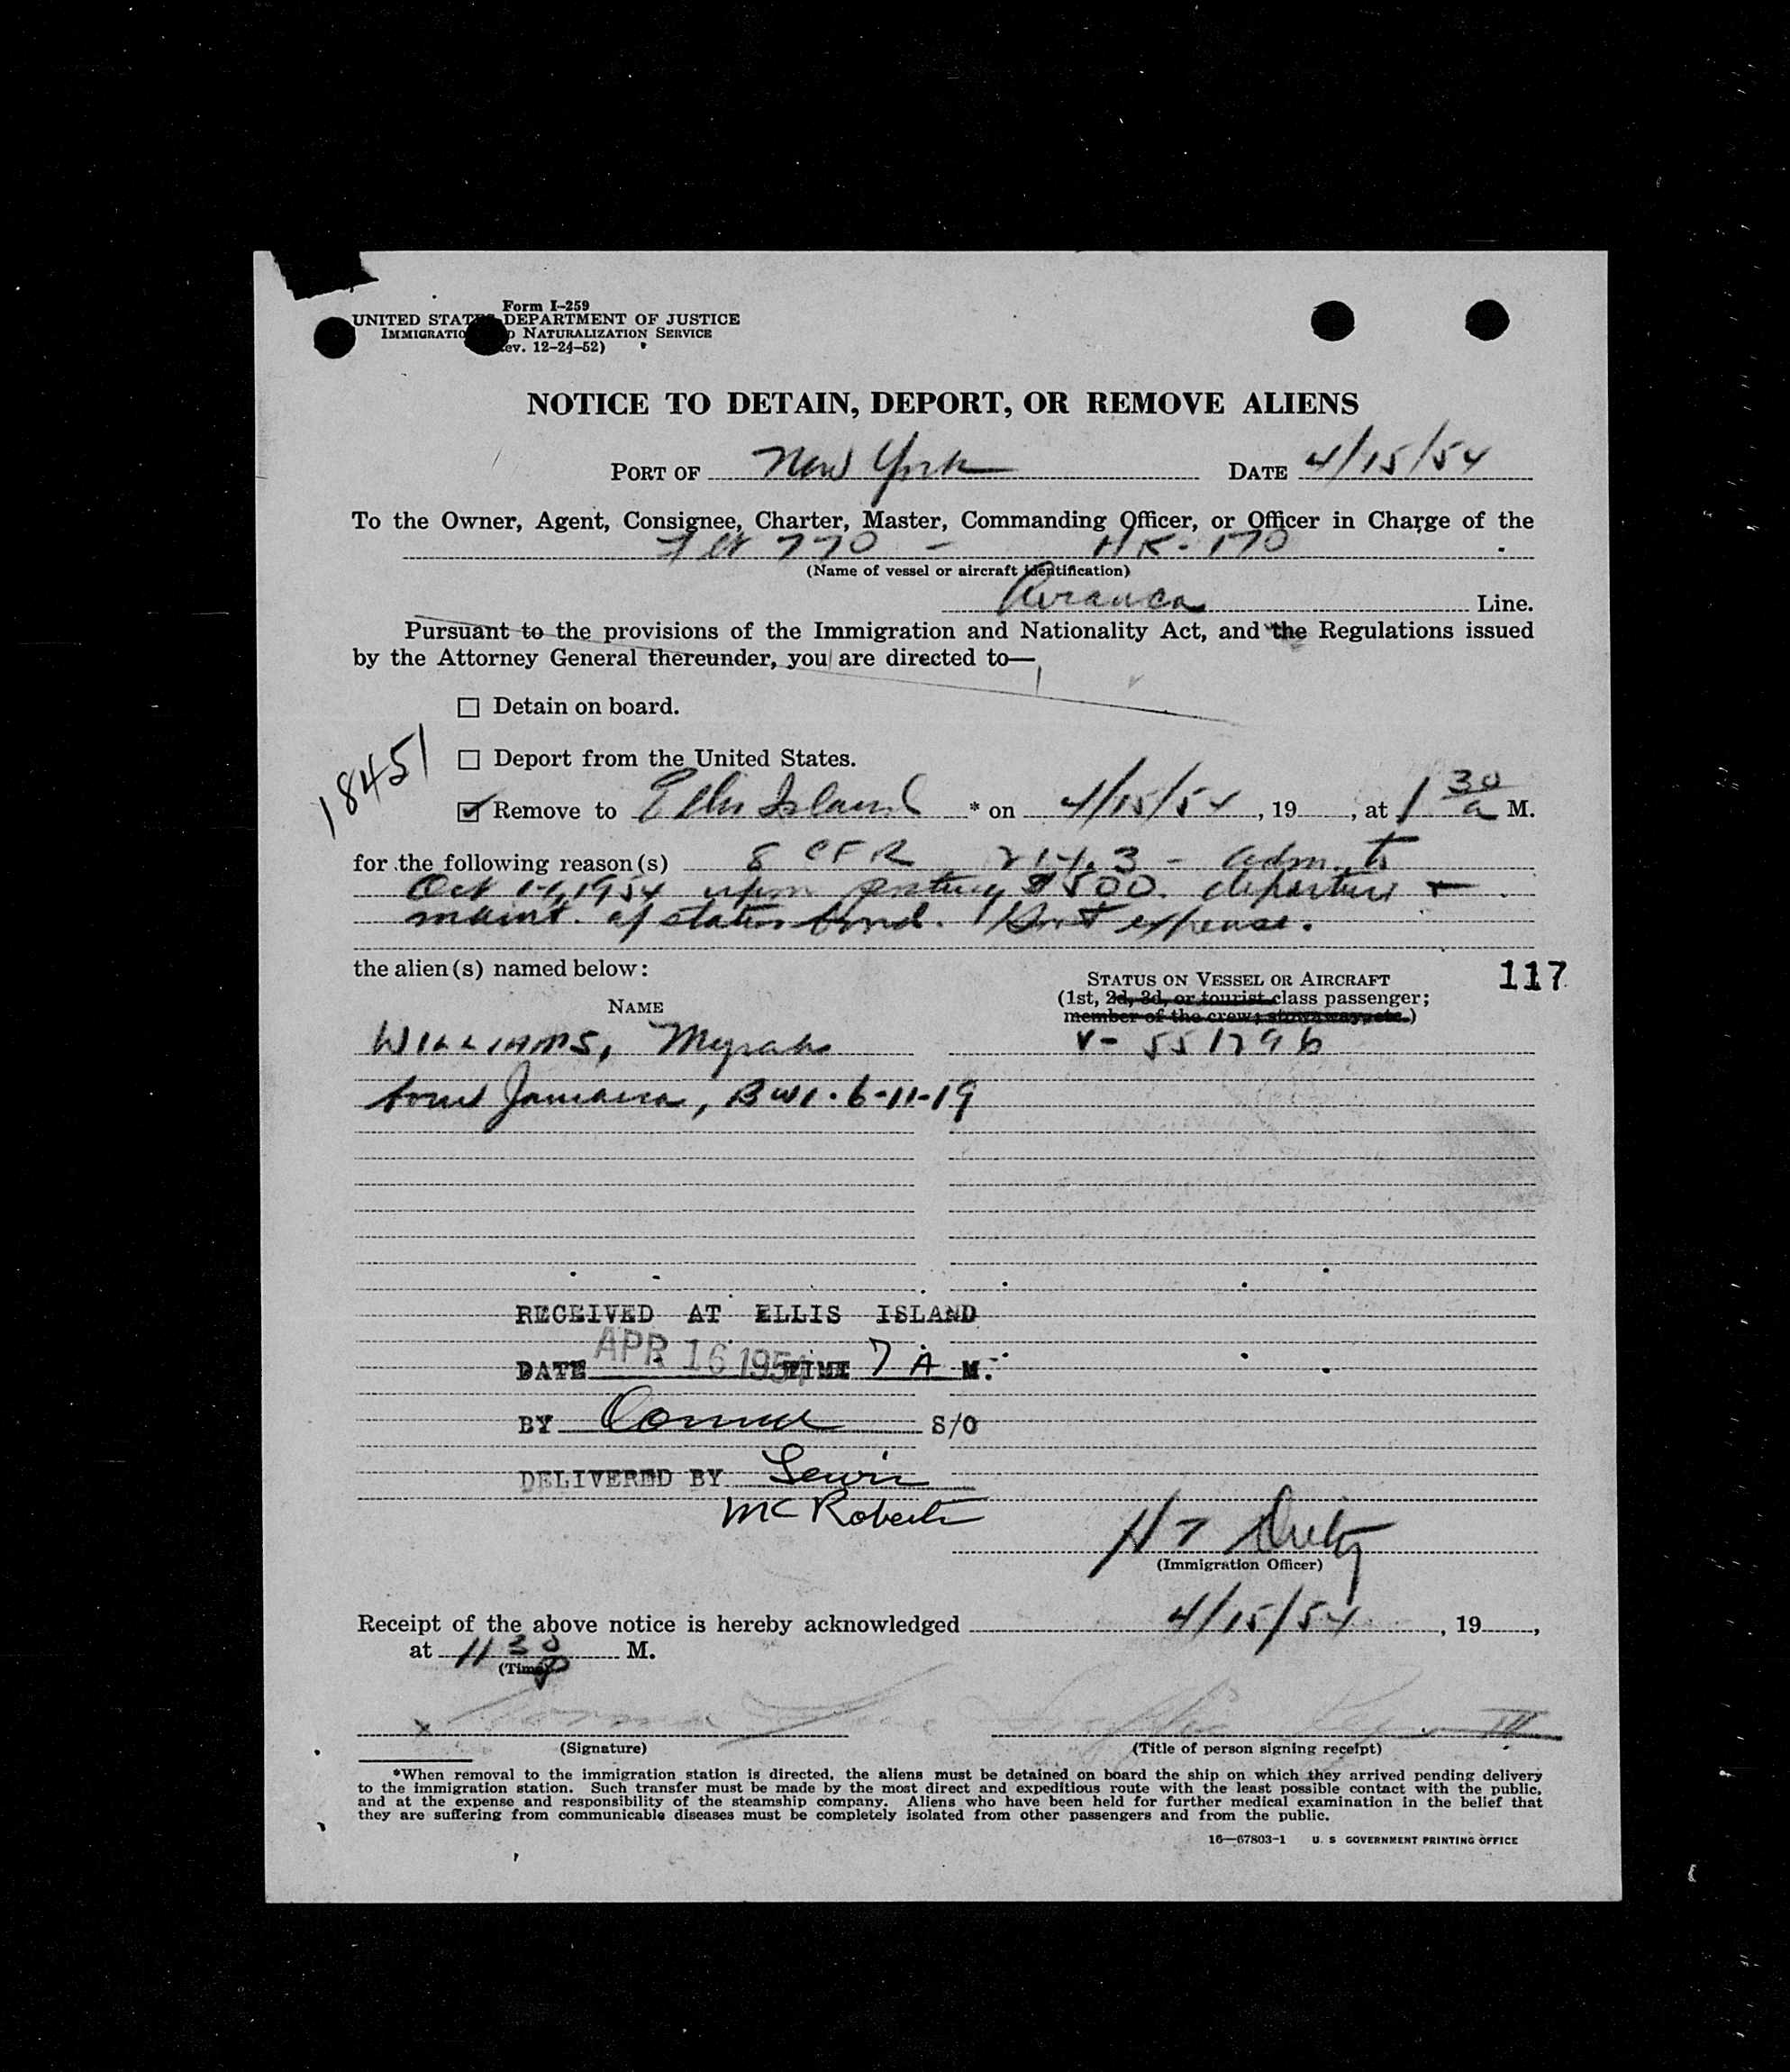 Form I-259
UNITED STATES DEPARTMENT OF JUSTICE
IMMIGRATION AND NATURALIZATION SERVICE
(Rev. 12-24-52)
NOTICE TO DETAIN, DEPORT, OR REMOVE ALIENS
PORT OF New York DATE 4/15/54
To the Owner, Agent, Consignee, Charter, Master, Commanding Officer, or Officer in Charge of the
Flt 770 - HK-170
(Name of vessel or aircraft identification)
Avianca Line.
Pursuant to the provisions of the Immigration and Nationality Act, and the Regulations issued
by the Attorney General thereunder, you are directed to—
☐ Detain on board.
18451
☐ Deport from the United States.
☑ Remove to Ellis Island * on 4/15/54, 19 , at 1 30 a M.
for the following reason(s) 8 CFR 214.3 - adm. to
Oct 14, 1954 upon posting $500. departure +
maint. of status bond. Govt expense.
the alien(s) named below:
STATUS ON VESSEL OR AIRCRAFT 117
(1st, 2d, 3d, or tourist class passenger;
member of the crew; stowaway, etc.)
NAME
WILLIAMS, V-551796
born Jamaica, BWI. 6-11-19
RECEIVED AT ELLIS ISLAND
DATE APR 16 1954 TIME 7 A M.
BY S/O
DELIVERED BY Lewis
McRoberts
H T
(Immigration Officer)
Receipt of the above notice is hereby acknowledged 4/15/54, 19 ,
at 11 30 P M.
(Time)
x
(Signature)
(Title of person signing receipt)
*When removal to the immigration station is directed, the aliens must be detained on board the ship on which they arrived pending delivery
to the immigration station. Such transfer must be made by the most direct and expeditious route with the least possible contact with the public,
and at the expense and responsibility of the steamship company. Aliens who have been held for further medical examination in the belief that
they are suffering from communicable diseases must be completely isolated from other passengers and from the public.
16—67803-1 U. S GOVERNMENT PRINTING OFFICE